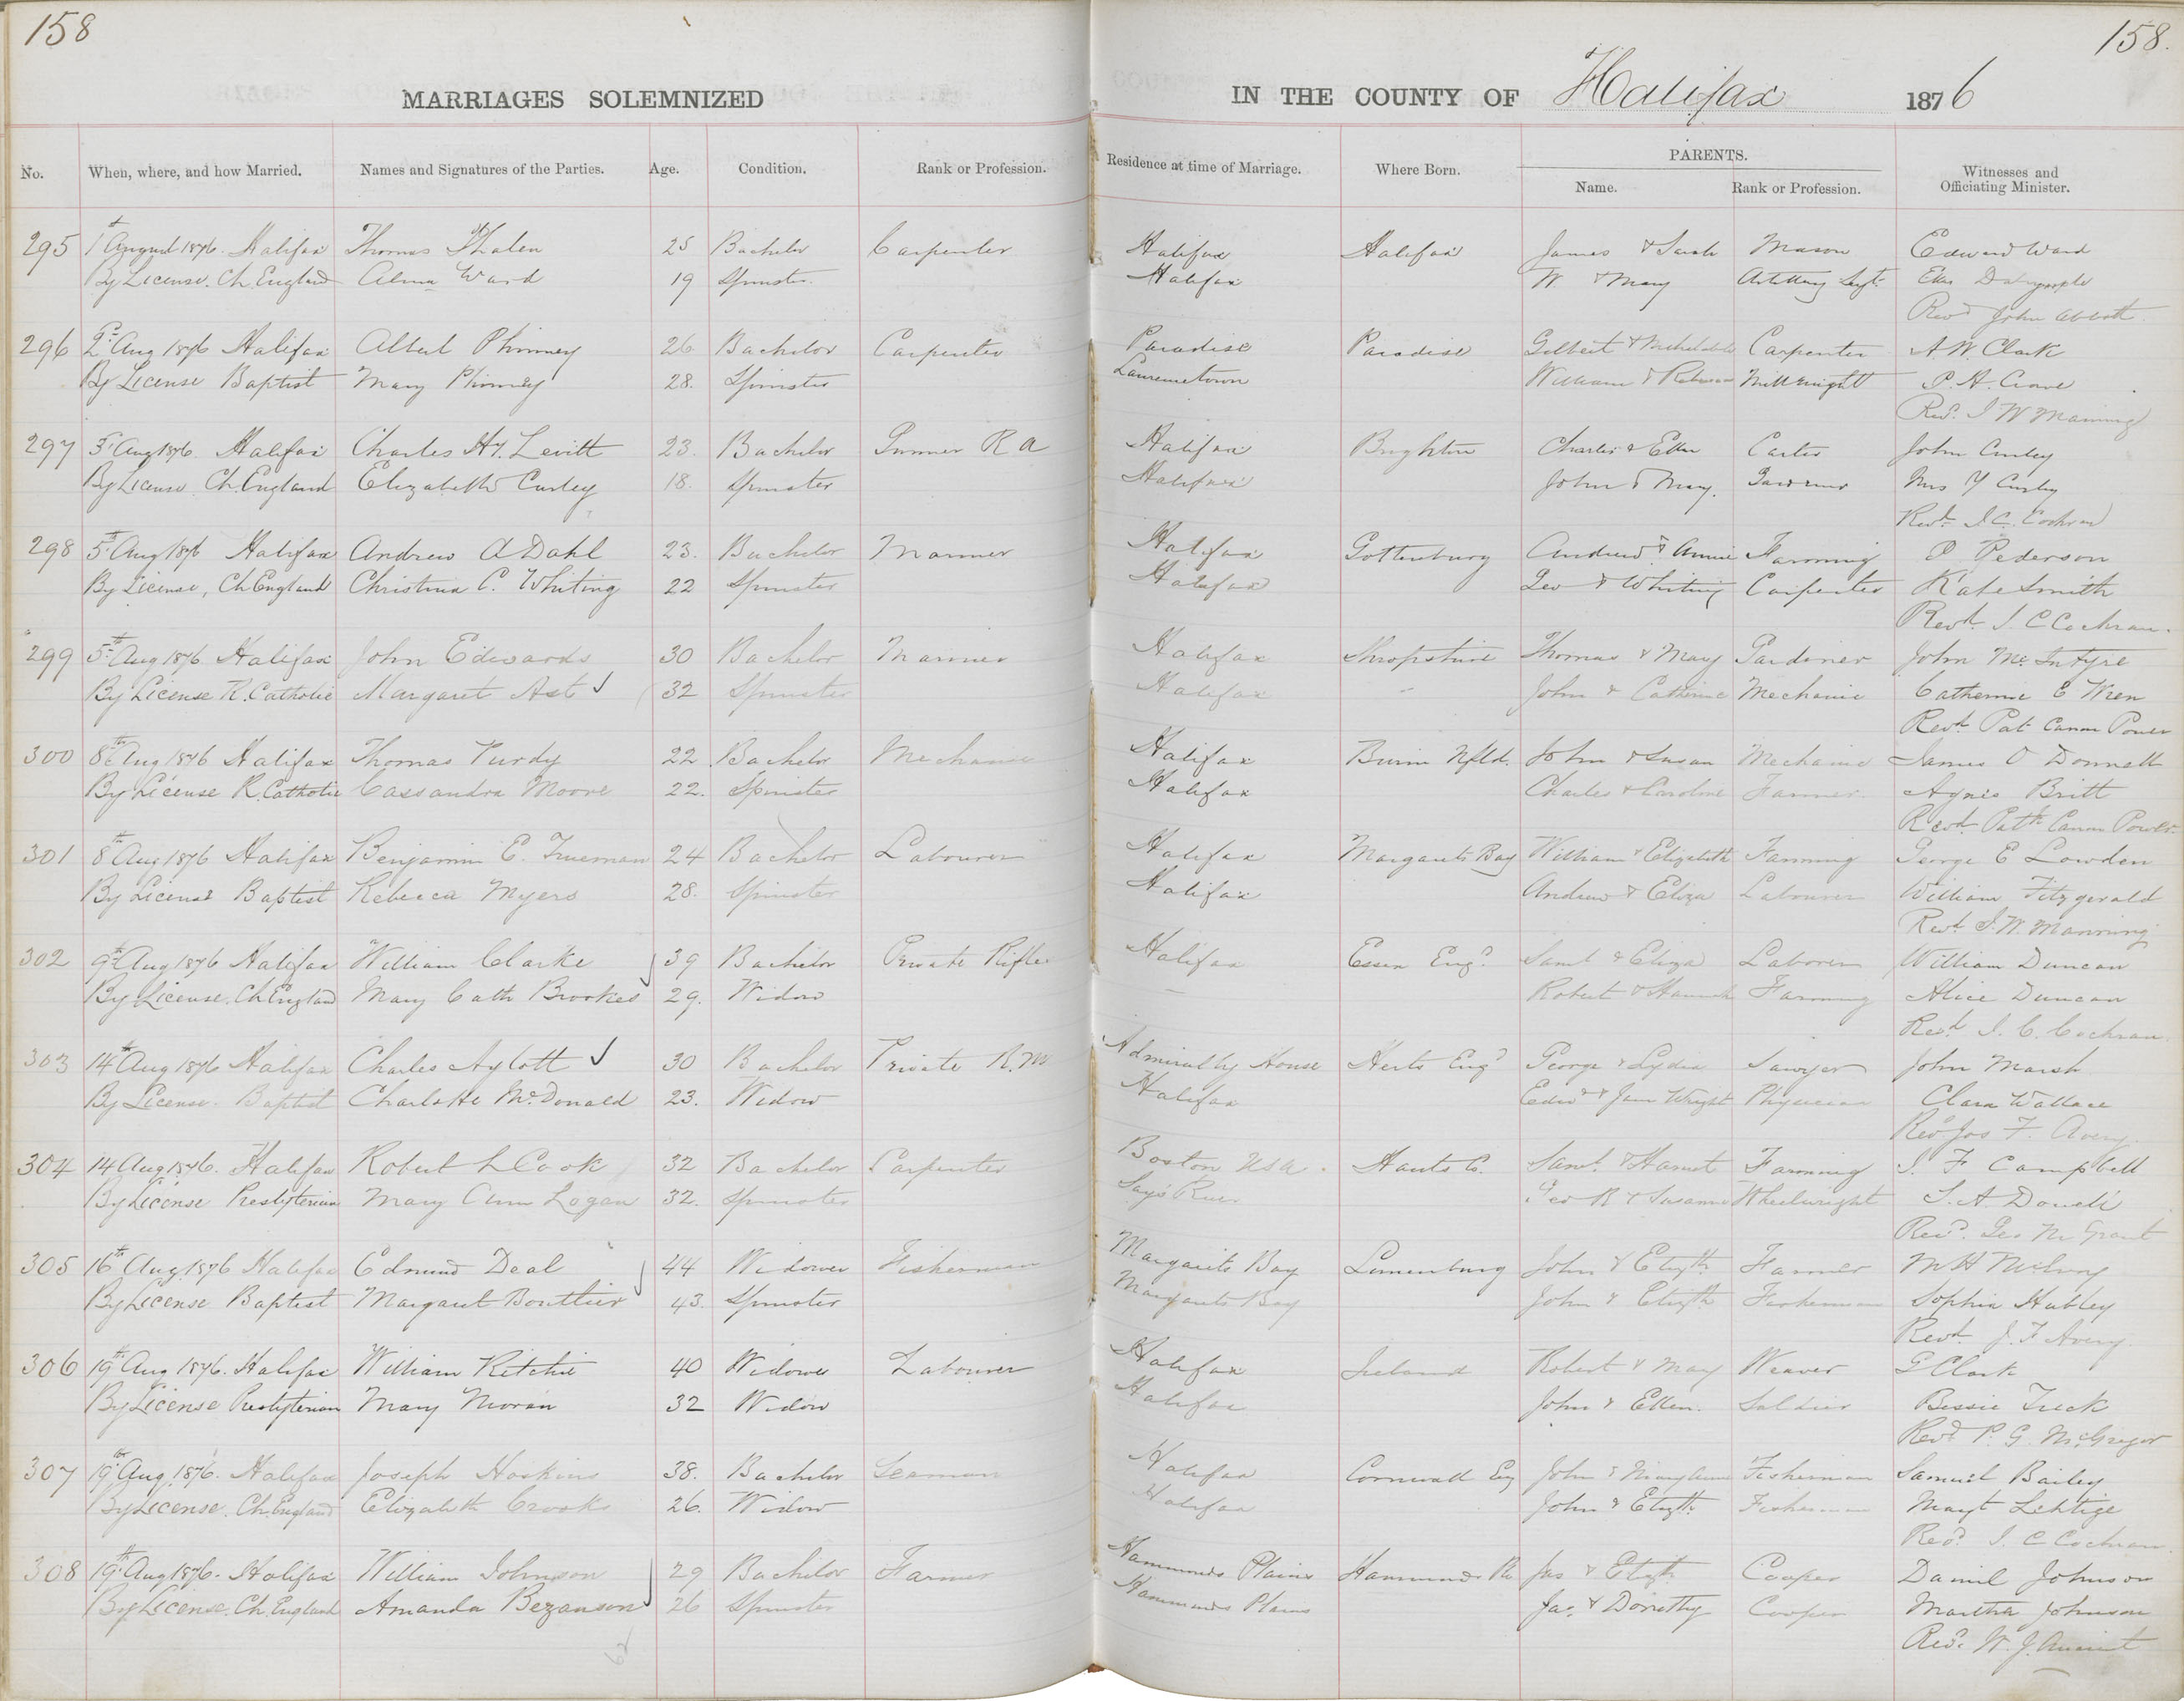 158
158.
MARRIAGES SOLEMNIZED IN THE COUNTY OF Halifax 1876
No. When, where, and how Married. Names and Signatures of the Parties. Age. Condition. Rank or Profession. Residence at time of Marriage. Where Born. PARENTS. Name. Rank or Profession. Witnesses and Officiating Minister.
295 1st August 1876. Halifax Thomas Phalen 25 Bachelor Carpenter Halifax Halifax James & Sarah Mason Edward Ward
By License. Ch. England Alma Ward 19 Spinster. Halifax W. & Mary Artillery Sergt. Dalrymple
Revd John Abbott
296 2d Aug 1876 Halifax Albert Phinney 26 Bachelor Carpenter Paradise Paradise Gilbert & Carpenter A W. Clark
By License Baptist Mary Phinney 28. Spinster Lawrencetown William & Millwright P. A. Crowe
Revd. J W Manning
297 3d Aug 1876. Halifax Charles Hy. Levitt 23. Bachelor Gunner R A Halifax Brighton Charles & Ellen Carter John Curley
By License Ch. England Elizabeth Curley 18. Spinster Halifax John & Mary. Mrs Y Curley
Revd. J. C. Cochran
298 5th Aug 1876 Halifax Andrew A Dahl 23. Bachelor Mariner Halifax Gottenburg Andrew & Annie Farming P Pederson
By License, Ch England Christina C. Whiting 22 Spinster Halifax Geo & Whiting Carpenter Kate Smith
Revd. J. C Cochran.
299 5th Aug 1876 Halifax John Edwards 30 Bachelor Mariner Halifax Shropshire Thomas & Mary Gardiner John McIntyre
By License R. Catholic Margaret Ast 32 Spinster Halifax John & Catherine Mechanic Catherine E Wren
Revd. Pat Canon Power
300 8th Aug 1876 Halifax Thomas Purdy 22 Bachelor Mechanic Halifax Burin Nfld. John & Susan Mechanic James O Donnell
By License R. Catholic Cassandra Moore 22. Spinster Halifax Charles & Caroline Farmer Agnes Britt
Revd. Patk Canon Power
301 8th Aug 1876 Halifax Benjamin E. Trueman 24 Bachelor Labourer Halifax Margarets Bay William & Elizabeth Farming George E Lowden
By License Baptist Rebecca Myers 28. Spinster Halifax Andrew & Eliza Labourer William Fitzgerald
Revd. J. W. Manning
302 9th Aug 1876 Halifax William Clarke 39 Bachelor Private Rifles Halifax Essex Engd. Saml & Eliza Laborer William Duncan
By License. Ch England Mary Cath Brookes 29. Widow Robert & Hannah Farming Alice Duncan
Revd J. C. Cochran
303 14th Aug 1876 Halifax Charles Aylott 30 Bachelor Private R.M Admiralty House Herts Engd George & Lydia Sawyer John Marsh
By License. Baptist Charlotte McDonald 23. Widow Halifax Edwd & Jane Wright Physician Clara Wallace
Revd Jos F. Avery
304 14 Aug 1876. Halifax Robert L Cook 32 Bachelor Carpenter Boston USA. Hants Co. Saml. & Harriet Farming J. F Campbell
By License Presbyterian Mary Ann Logan 32. Spinster Gays River Geo R & Susanna Wheelwright
Revd. Geo M Grant
305 16th Aug 1876 Halifax Edmund Deal 44 Widower Fisherman Margarets Bay Lunenburg John & Elizth Farmer
By License Baptist Margaret Boutlier 43. Spinster Margarets Bay John & Elizth Fisherman Sophia Hubley
Revd. J. F Avery
306 19th Aug 1876. Halifax William Ritchie 40 Widower Labourer Halifax Ireland Robert & Mary Weaver G Clark
By License Presbyterian Mary Moran 32 Widow Halifax John & Ellen. Soldier Bessie Tuck
Revd P. G. McGregor
307 19th Aug 1876. Halifax Joseph Hoskins 38. Bachelor Seaman Halifax Cornwall Eng John & Mary Anne Fisherman Samuel Bailey
By License. Ch. England Elizabeth Crooks 26. Widow Halifax John & Elizth. Fisherman Margt
Revd. J. C Cochran.
308 19th Aug 1876. Halifax William Johnson 29 Bachelor Farmer Hammonds Plains Hammonds Pls Jas & Elizth Cooper Daniel Johnson
By License. Ch. England Amanda Bezanson 26 Spinster Hammonds Plains Jas. & Dorothy Cooper Martha Johnson
Revd. W. J. Ancient
62